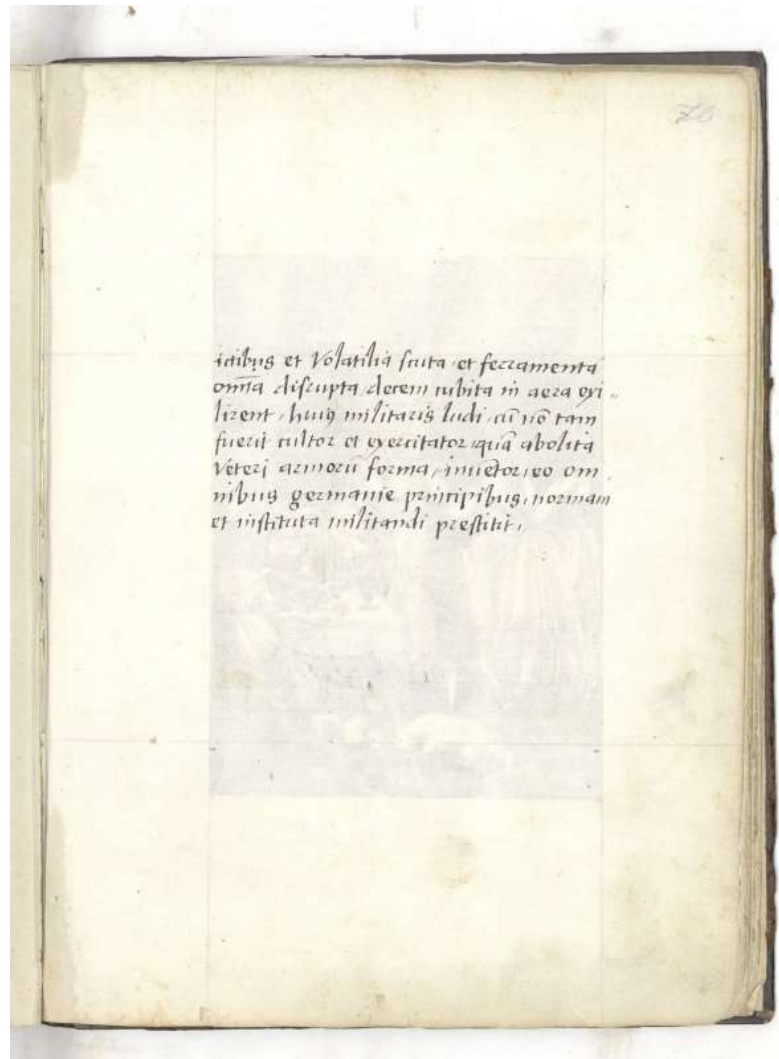 70
ictibus et Volatilia scuta et ferramenta
om̅ia disrupta, decem cubita in aera exi-
lirent, huiꝰ militaris ludi, cū nō tam
fuerit cultor et exercitator, quā abolita
Veteri armorū forma, inuētor, eo om
nibus germanie principibus, normam
et instituta militandi prestitit,